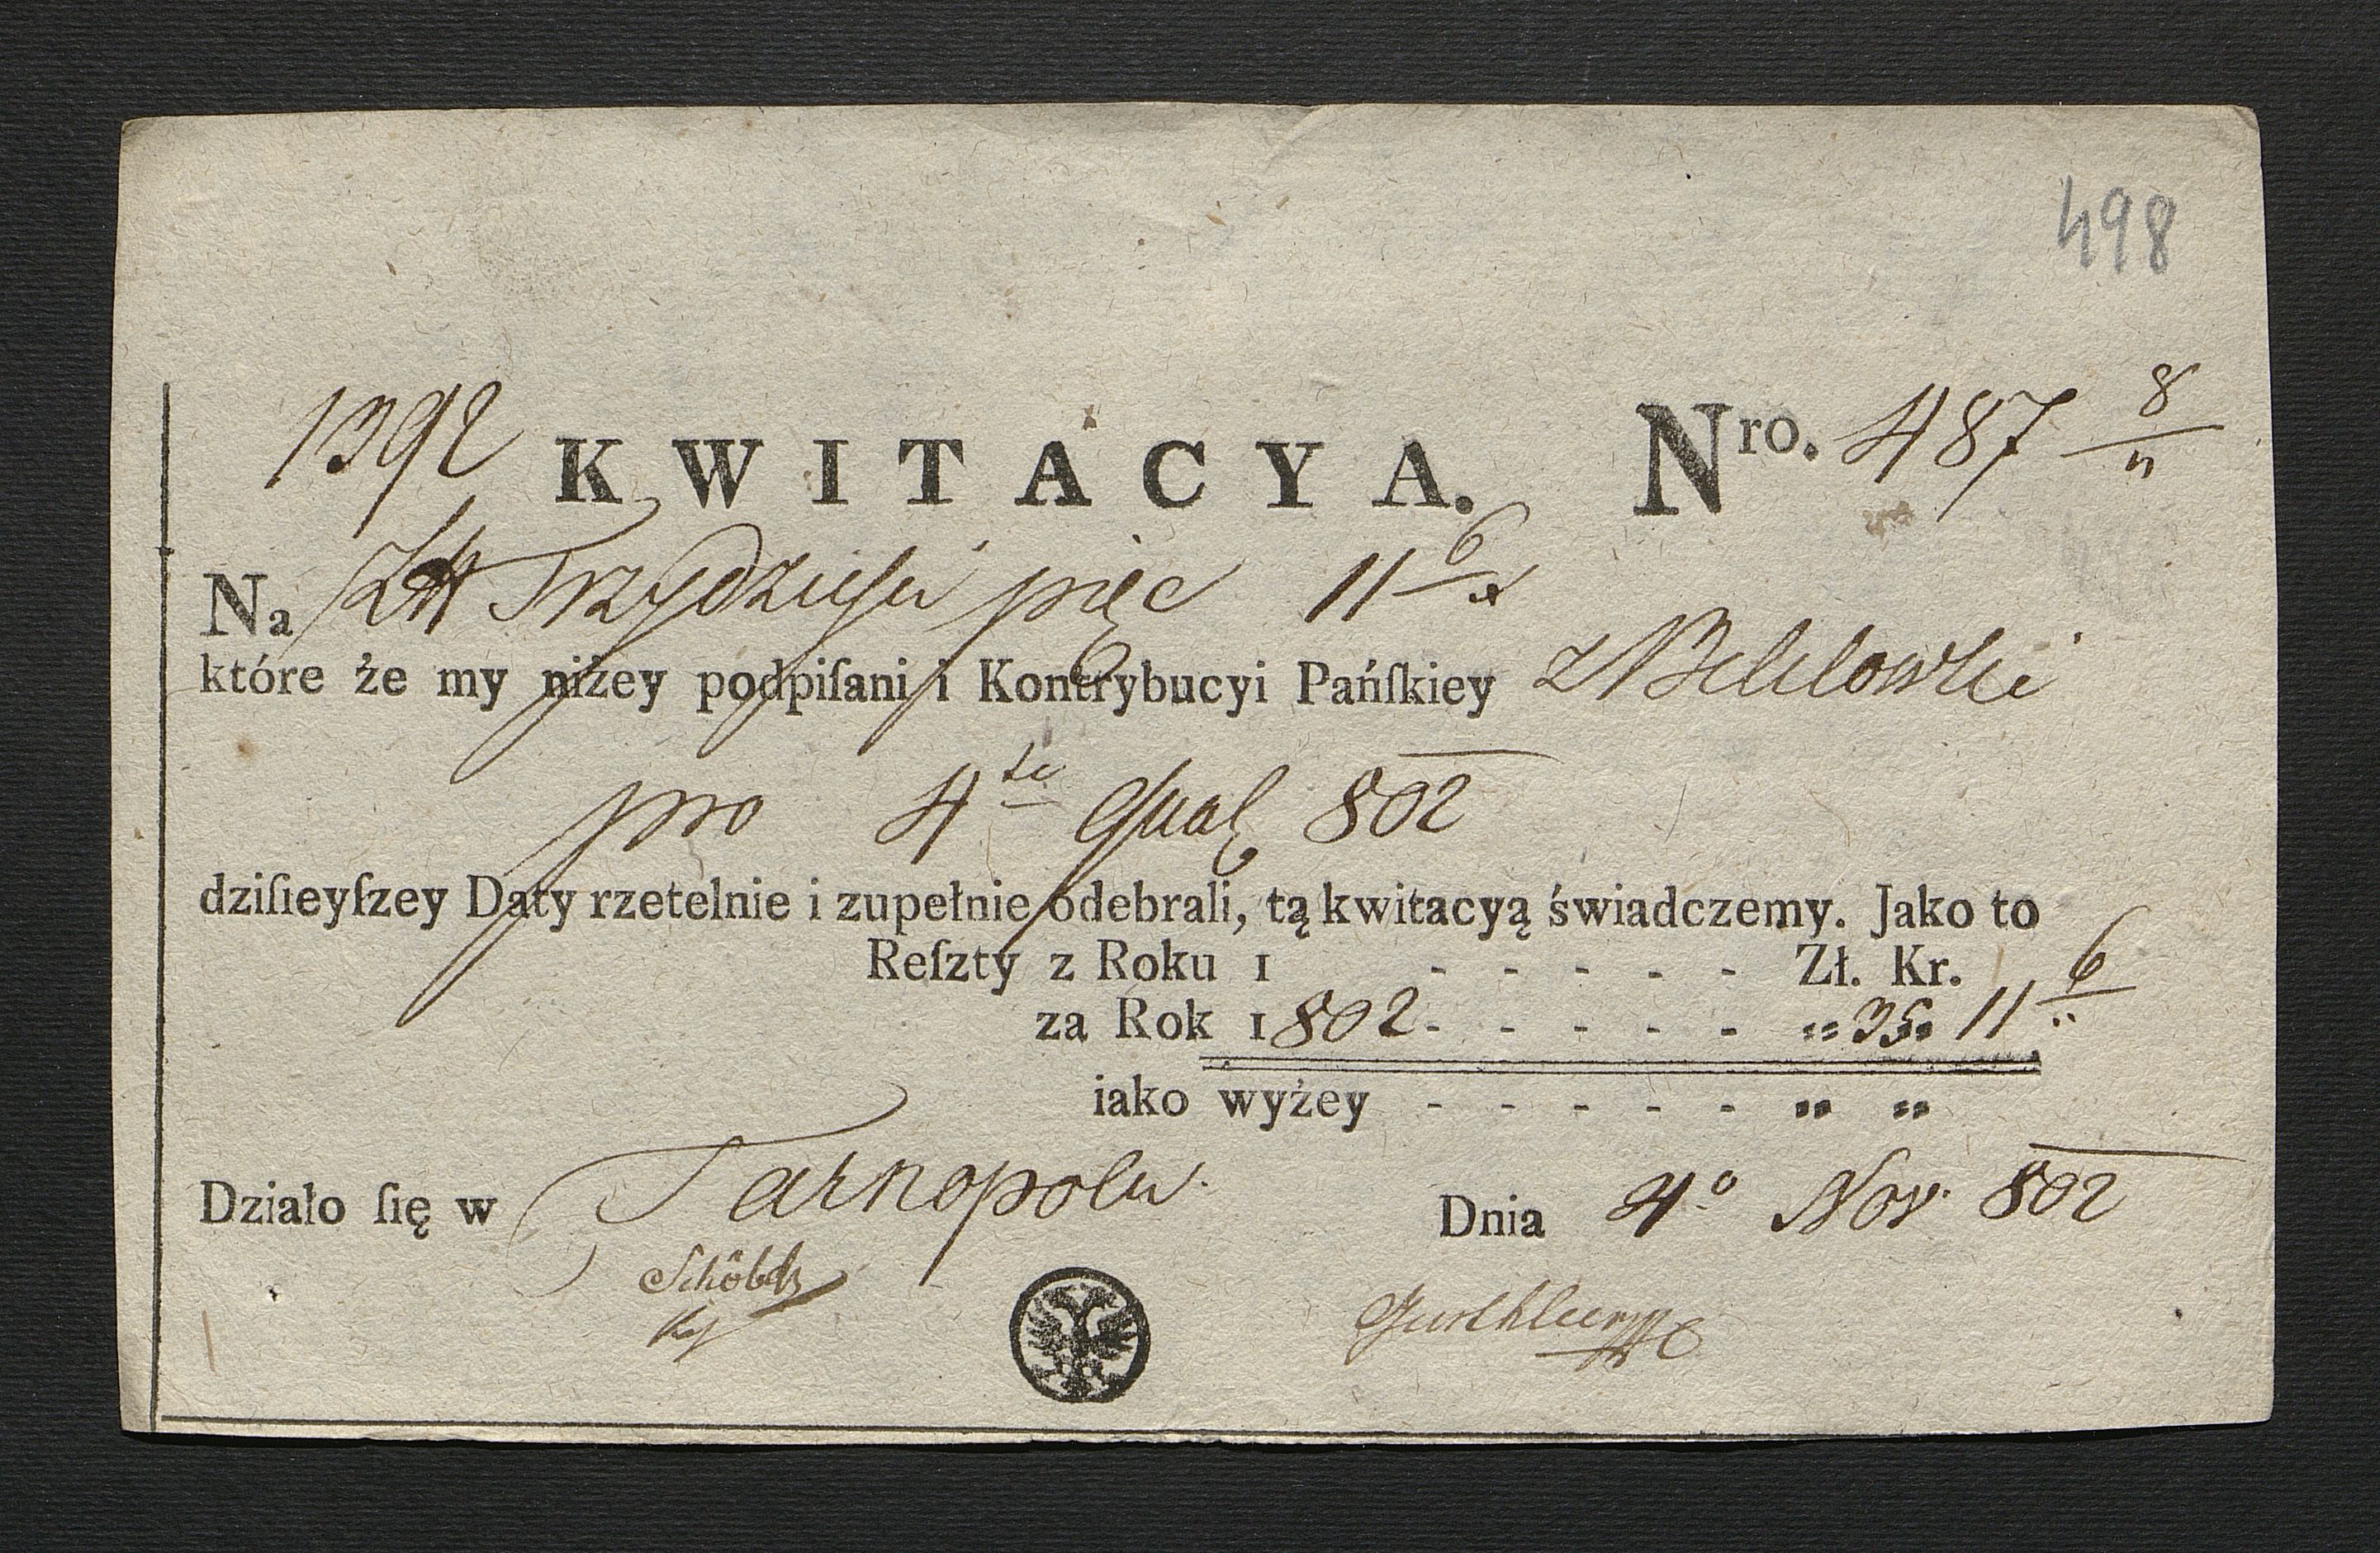 498
1392 KWITACYA. Nro. 487 8/"
Na Złt Trzydzieści pięc 11 6/"
które że my niżey podpiſani i Kontrybucyi Pańſkiey z Bełełowki
pro 4te Qual 802
dziſieyſzey Daty rzetelnie i zupełnie odebrali, tą kwitacyą świadczemy. Jako to
Reſzty z Roku 1 - - - - - Zł. Kr.
za Rok 1802 - - - - - " 35 " 11 6/"
iako wyżey - - - - - " "
Działo ſię w Tarnopolu. Dnia 4o Nov. 802